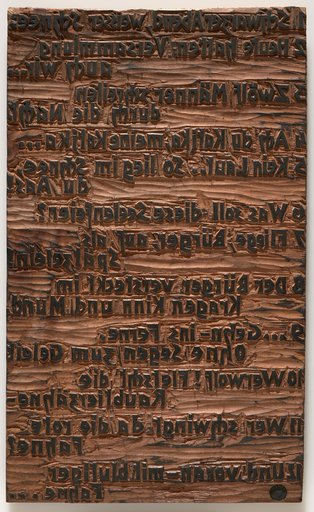 1 Schwarzer Abend, weisser Schnee
2 Heute hattem Versammlung
auch wir...
3 Zwölf Männer schreiten
durch die Nacht
4 Ach du Kattka, meine Kattka...
5 Kein Laut... So lieg im Schnee,
du Aas!
6 Was soll diese
7 Fliege, Bürger, auf, als
Spatzelein
8 Der Bürger versteckt im
Kragen Kinn und Mund.
9 ... Gehn ins Ferne,
Ohne Segen zum Geleit
10 Werwolf fletscht die
Raubtierzähne
11 Wer schwingt da die rote
Fahne?
12 Und voran mit blutiger
Fahne ...